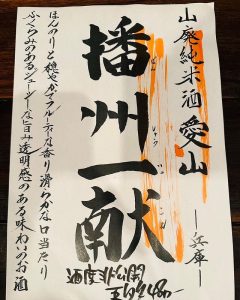 山廃純米酒 愛山 ー兵庫ー
播州一献
ほんのりと穏やかでフルーティな香り滑らかな口当たり
ふくらみのあるジューシーな旨み透明感のある味わいのお酒